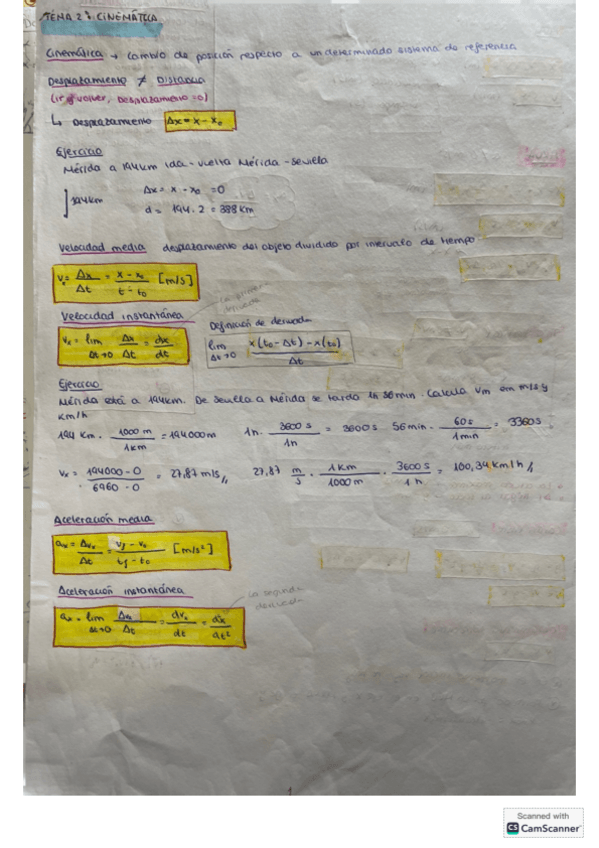 TEMA 2: CINEMÁTICA
Cinemática → cambio de posición respecto a un determinado sistema de referencia
Desplazamiento ≠ Distancia
(ir y volver, desplazamiento = 0)
↳ Desplazamiento Δx = x - x₀
Ejercicio
Mérida a 194 km ida-vuelta Mérida-Sevilla
194 km Δx = x - x₀ = 0
d = 194 · 2 = 388 km
Velocidad media desplazamiento del objeto dividido por intervalo de tiempo
vₓ = Δx/Δt = (x - x₀)/(t - t₀) [m/s]
la primera derivada
Velocidad instantánea
vₓ = lim Δt→0 Δx/Δt = dx/dt
Definición de derivada
lim Δt→0 (x(t₀ - Δt) - x(t₀))/Δt
Ejercicio
Mérida está a 194 km. De Sevilla a Mérida se tarda 1h 56 min. Calcula Vm en m/s y
km/h
194 km · 1000 m/1 km = 194000 m 1h · 3600 s/1h = 3600 s 56 min · 60 s/1 min = 3360 s
vₓ = (194000 - 0)/(6960 - 0) = 27,87 m/s 27,87 m/s · 1 km/1000 m · 3600 s/1 h = 100,34 km/h
Aceleración media
aₓ = Δvₓ/Δt = (vf - v₀)/(tf - t₀) [m/s²]
Aceleración instantánea
la segunda derivada
aₓ = lim Δt→0 Δvₓ/Δt = dvₓ/dt = d²x/dt²
1
Scanned with
CS CamScanner